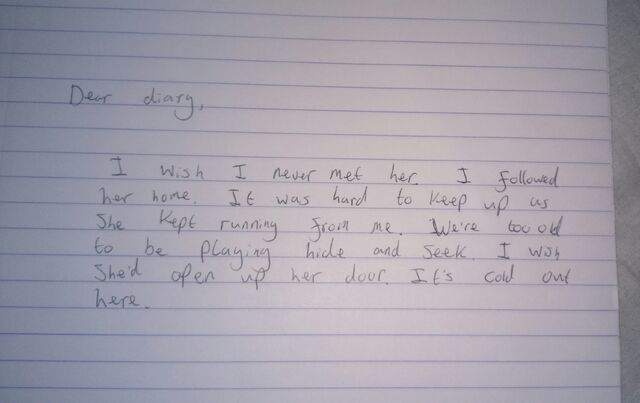 Dear diary,
I wish I never met her. I followed
her home. It was hard to keep up as
She kept running from me. We're too old
to be playing hide and seek. I wish
She'd open up her door. It's cold out
here.